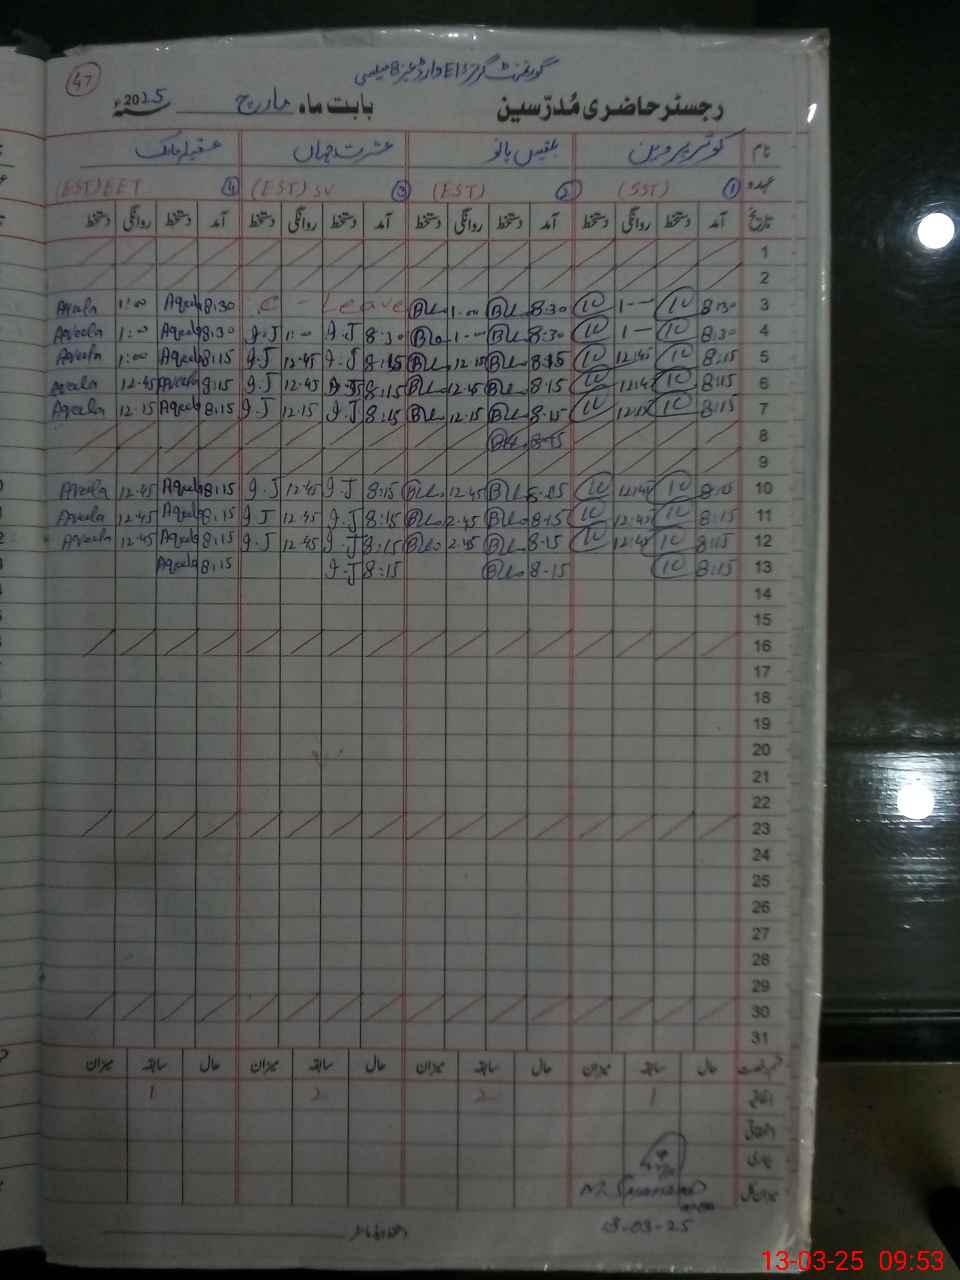 47
گورنمنٹ گرلز E/S وارڈ نمبر 8 میلسی
رجسٹر حاضری مُدرّسین بابت ماہ مارچ سنہ 2025ء
نام کوثر پروین بلقیس بانو عشرت جہاں عقیلہ
عہدہ (SST) ① (EST) ② (EST) SV ③ (EST) EET ④
تاریخ آمد دستخط روانگی دستخط آمد دستخط روانگی دستخط آمد دستخط روانگی دستخط آمد دستخط روانگی دستخط
1
2
3 8:30 1-- 8:30 1-00 C - Leave 8:30 Aqeela 1:00 Aqeela
4 8:30 1-- 8:30 1-00 8:30 I.J 1:00 I.J 8:30 Aqeela 1:00 Aqeela
5 8:15 12:45 8:15 12.15 8:15 I.J 12.45 I.J 8:15 Aqeela 1:00 Aqeela
6 8:15 12:45 8:15 12.45 8:15 I.J 12.45 I.J 8:15 Aqeela 12.45 Aqeela
7 8:15 12:15 8:15 12.15 8:15 I.J 12.15 I.J 8:15 Aqeela 12.15 Aqeela
8 8-15
9
10 8:15 12:45 8:15 12.45 8:15 I.J 12.45 I.J 8:15 Aqeela 12.45 Aqeela
11 8:15 12:45 8:15 2.45 8:15 I.J 12.45 I.J 8:15 Aqeela 12.45 Aqeela
12 8:15 12:45 8-15 2.45 8:15 I.J 12.45 I.J 8:15 Aqeela 12.45 Aqeela
13 8:15 8-15 8:15 I.J 8:15 Aqeela
14
15
16
17
18
19
20
21
22
23
24
25
26
27
28
29
30
31
حال سابقہ میزان حال سابقہ میزان حال سابقہ میزان حال سابقہ میزان
1 2 2 1
13-03-25
13-03-25 09:53